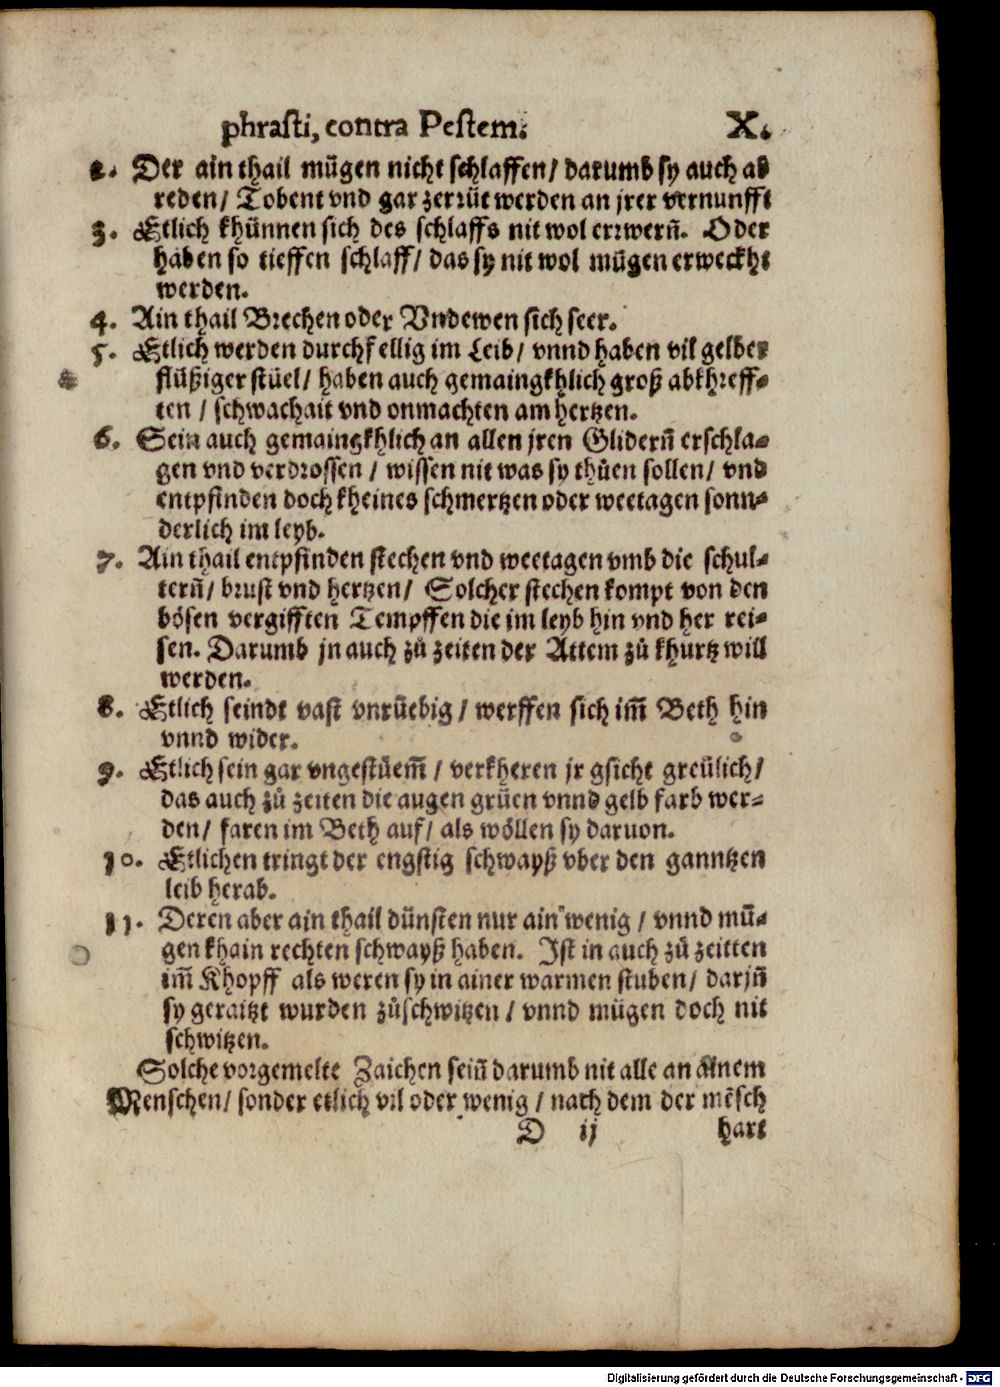 phrasti, contra Pestem. X.
2. Der ain thail mügen nicht schlaffen/ darumb sy auch ab
reden/ Tobent vnd gar zerrüt werden an jrer vernunfft
3. Etlich khünnen sich des schlaffs nit wol erwern̄. Oder
haben so tieffen schlaff/ das sy nit wol mügen erweckht
werden.
4. Ain thail Brechen oder Vndewen sich seer.
5. Etlich werden durchfellig im Leib/ vnnd haben vil gelber
flüßiger stüel/ haben auch gemaingkhlich groß abkhreff⸗
ten / schwachait vnd onmachten am hertzen.
6. Sein auch gemaingkhlich an allen jren Glidern̄ erschla⸗
gen vnd verdrossen / wissen nit was sy thüen sollen/ vnd
entpfinden doch kheines schmertzen oder weetagen sonn⸗
derlich im leyb.
7. Ain thail entpfinden stechen vnd weetagen vmb die schul⸗
tern̄/ brust vnd hertzen/ Solcher stechen kompt von den
bösen vergifften Tempffen die im leyb hin vnd her rei⸗
sen. Darumb jn auch zů zeiten der Attem zů khurtz will
werden.
8. Etlich seindt vast vnrüebig / werffen sich im̄ Beth hin
vnnd wider.
9. Etlich sein gar vngestüem̄ / verkheren jr gsicht greülich/
das auch zů zeiten die augen grüen vnnd gelb farb wer⸗
den/ faren im Beth auf/ als wöllen sy daruon.
10. Etlichen tringt der engstig schwayß vber den ganntzen
leib herab.
11. Deren aber ain thail dünsten nur ain wenig / vnnd mü⸗
gen khain rechten schwayß haben. Ist in auch zů zeitten
im̄ Khopff als weren sy in ainer warmen stuben/ darjn̄
sy geraitzt wurden zůschwitzen / vnnd mügen doch nit
schwitzen.
Solche vorgemelte Zaichen sein̄ darumb nit alle an ainem
Menschen/ sonder etlich vil oder wenig / nach dem der mēsch
D ij hart
Digitalisierung gefördert durch die Deutsche Forschungsgemeinschaft - DFG